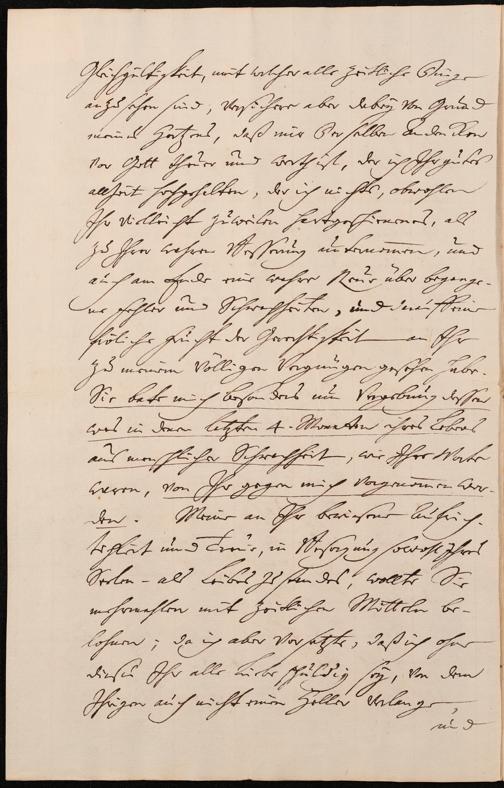 Gleichgültigkeit, mit welcher alle zeitliche Dinge
anzusehen sind, versichere aber dabey von Grund
meines Hertzens, daß mir Derselben Andencken
vor Gott theuer und werth ist, der ich Ihr gutes
allzeit hochgehalten, der ich nichts, obwohlen
Ihr vielleicht zuweilen hartgeschienenes, als
zu Ihrer wahren Besserung unternommen, und
auch am Ende eine wahre Reue über begange-
ne Fehler und Schwachheiten, und eine
fröliche Frucht der Gerechtigkeit an Ihr
zu meinem völligen Vergnügen gesehen habe.
Sie bate mich besonders um Vergebung dessen
was in denen letzten 4. Monathen ihres Lebens
aus menschlicher Schwachheit, wie Ihre Worte
waren, von Ihr gegen mich vorgenommen wor-
den. Meine an Ihr bewiesene Aufrich-
tigkeit und Treue, in Besorgung sowohl Ihres
Seelen- als Leibes Zustandes, wollte Sie
mehrmahlen mit zeitlichen Mitteln be-
lohnen; da ich aber vorsetzte, daß ich ohne
dieses Ihr alle Liebe schuldig sey, von dem
Ihrigen auch nicht einen Heller verlange
und